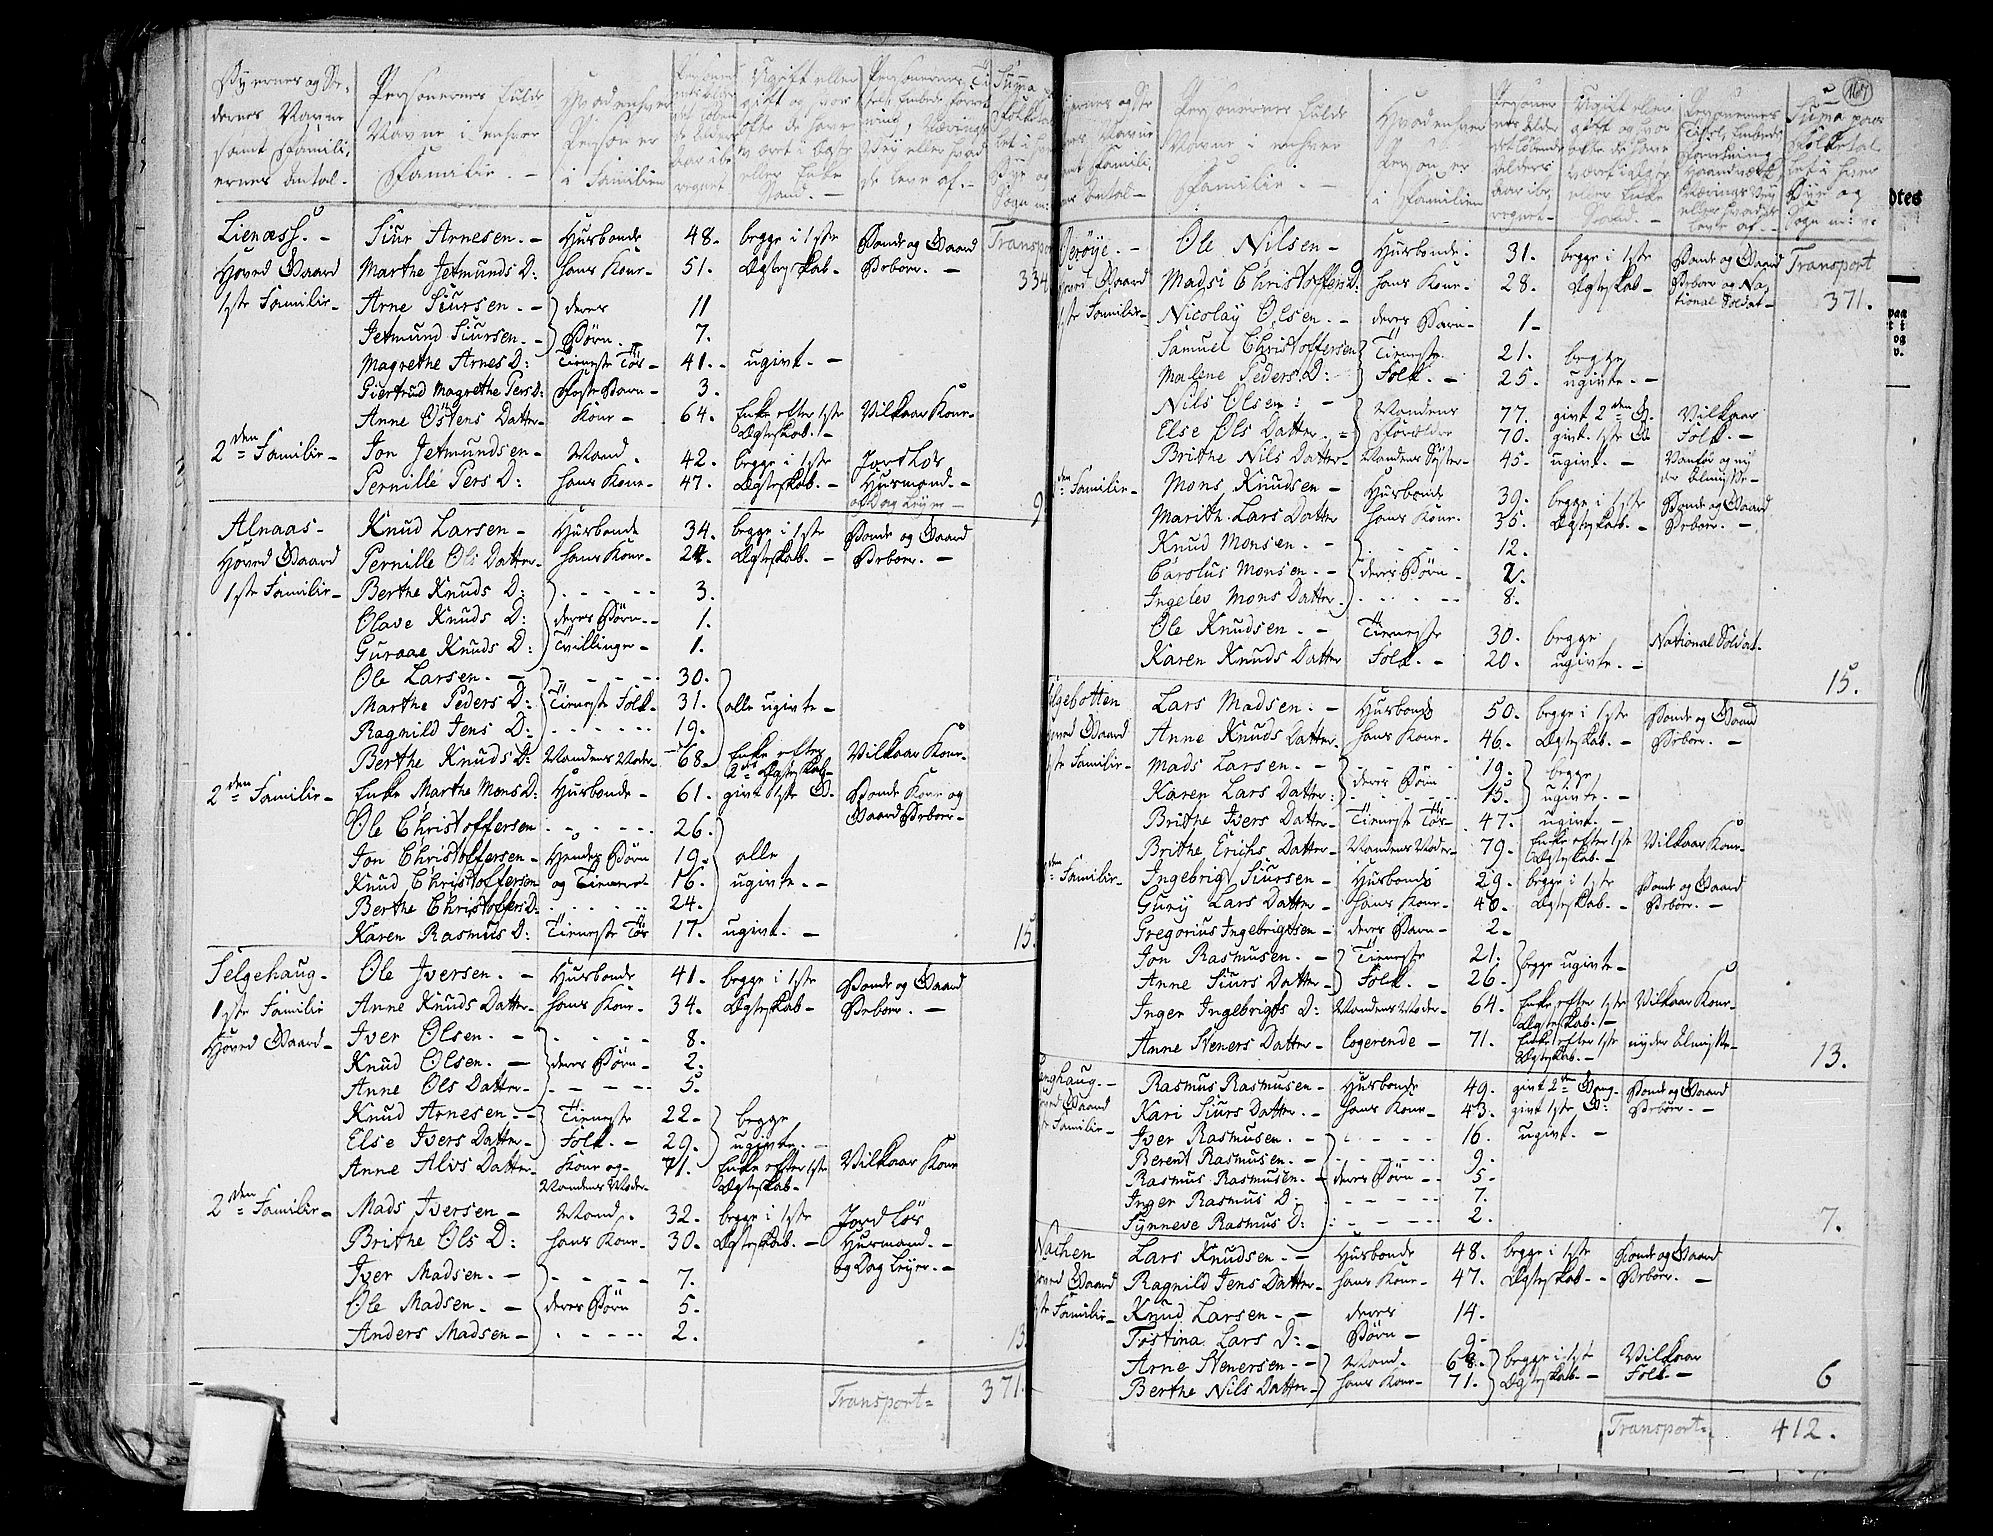 Byernes og Ste-
dernes Navne
samt Famili-
ernes antal.
Personernes fulde
Navne i enhver
Familie. —
Hvad enhver
Person er
i Familien
Ugift eller
gift og hvor
ofte de have
været i Ægte
eller Enke
Stand. —
Lienæss. —
Hoved Gaard
1ste Familie —
Siur Arnesen. — Husbonde 48. begge i 1ste Bonde og Gaard Transport
Marthe Jetmunds D: hans Kone — 51. Ægteskab. — Beboer. — 334
Arne Siursen. — deres 11
Jetmund Siursen. — Børn. 7.
Magrethe Arnes D: Tieneste Tøs — 41. ugivt. —
Giertrud Magrethe Pers D: Foster Barn — 3.
Anne Østens Datter — Kone — 64. Enke efter 1ste Vilkaar Kone —
Ægteskab. —
2den Familie — Jon Jetmundsen — Mand. 42. begge i 1ste Jordløs
Pernille Pers D: hans Kone — 47. Ægteskab. — Husmand. —
og Dag Leyer — 9
Alnaas —
Hoved Gaard
1ste Familie —
Knud Larsen — Husbonde 34. begge i 1ste Bonde og Gaard
Pernille Ols Datter — hans Kone — 24. Ægteskab. — Beboer. —
Berthe Knuds D: 3.
Olave Knuds D: deres Børn — 1.
Guraae Knuds D: Tvillinge — 1.
Ole Larsen. — 30.
Marthe Peders D: Tieneste Folk — 31. alle ugivte —
Ragnild Jens D: 19.
Berthe Knuds D: Mandens Moder — 68. Enke efter Vilkaar Kone —
2det Ægteskab —
2den Familie — Enke Marthe Mons D: Husbonde — 61. givt 1ste G. Bonde Kone og
Gaard Beboer —
Ole Christoffersen 26.
Jon Christoffersen — Hendes Børn 19. alle
Knud Christoffersen og Tienere — 16. ugivte. —
Berthe Christoffers D: 24.
Karen Rasmus D: Tieneste Tøs 17. ugivt. — 15.
Selgehaug —
1ste Familie
Hoved Gaard —
Ole Iversen. — Husbonde 41. begge i 1ste Bonde og Gaard
Anne Knuds Datter — hans Kone — 34. Ægteskab — Beboer. —
Iver Olsen. — 8.
Knud Olsen. — deres Børn — 2.
Anne Ols Datter — 5.
Knud Arnesen. — Tieneste 22. begge
Else Ivers Datter — Folk. — 29. ugivte. —
Anne Alvs Datter — Kone og 71. Enke efter 1ste Vilkaar Kone
Mandens Moder — Ægteskab —
2den Familie — Mads Iversen — Mand. 32. begge i 1ste Jordløs
Brithe Ols D: hans Kone — 30. Ægteskab. — Husmand. —
og Dag Leyer. —
Iver Madsen. — 7.
Ole Madsen. — deres Børn 5.
Anders Madsen — 2. 13
Transport — 371.
167
Personernes fulde
Navne i enhver
Familie. —
Hvad enhver
Person er
i Familien
Ole Nilsen — Husbonde. 31. begge i 1ste Bonde og Gaard Transport
Hoved Gaard Madsi Christoffers D: hans Kone — 28. Ægteskab — Beboer og Na- 371.
tional Soldat —
1ste Familie — Nicolay Olsen. — deres Barn — 1 —
Samuel Christoffersen Tieneste 21. begge
Malene Peders D: Folk. — 25. ugivte. —
Nils Olsen: — Mandens 77. givt 2den G. Vilkaar
Else Ols Datter. — Forældre 70. givt. 1ste G Folk. —
Brithe Nils Datter — Mandens Søster — 45. ugivt. — Vanfør og ny-
der Almisse —
den Familie — Mons Knudsen — Husbonde 39. begge i 1ste Bonde og Gaard
Marith Lars Datter hans Kone — 35. Ægteskab. — Beboer. —
Knud Monsen. — 12.
Carolus Monsen. — deres Børn — 2.
Ingelev Mons Datter. 8.
Ole Knudsen. — Tieneste 30. begge National Soldat.
Karen Knuds Datter Folk. — 20. ugivte. —
15.
lgebotten Lars Madsen. — Husbonde 50. begge i 1ste Bonde og Gaard
Hoved Gaard Anne Knuds Datter — hans Kone — 46. Ægteskab. — Beboer. —
1ste Familie — Mads Larsen. — 19. begge
Karen Lars Datter: deres Børn 15. ugivte. —
Brithe Ivers Datter — Tieneste Tøs — 47. ugivt. —
Brithe Erichs Datter — Mandens Moder — 79. Enke efter 1ste Vilkaar Kone —
Ægteskab. —
den Familie — Ingebrigt Siursen — Husbonde 29. begge i 1ste Bonde og Gaard
Gury Lars Datter — hans Kone — 40. Ægteskab. — Beboer. —
Gregorius Ingebrigtsen — deres Barn — 2 —
Jon Rasmusen. — Tieneste 21. begge ugivte —
Anne Siurs Datter — Folk. — 26.
Inger Ingebrigts D: Mandens Moder — 64. Enke efter 1ste Vilkaar Kone —
Ægteskab. —
Anne Steners Datter — logerende — 71. Enke efter 1ste nyder Almisse —
Ægteskab. — 13.
nghaug. — Rasmus Rasmusen — Husbonde 49. givt 2den Gang — Bonde og Gaard
Hoved Gaard Kari Siurs Datter. — hans Kone — 43. givt 1ste G: Beboer. —
Familie — Iver Rasmusen. — 16. ugivt. —
Berent Rasmusen. — 9.
Rasmus Rasmusen. — deres Børn — 5.
Inger Rasmus D: 7.
Synneve Rasmus D: 2. 7.
Nachen Lars Knudsen. — Husbonde 48. begge i 1ste Bonde og Gaard
Hoved Gaard Ragnild Jens Datter — hans Kone — 47. Ægteskab. — Beboer. —
1ste Familie — Knud Larsen — deres 14.
Tostina Lars D: Børn — 9 —
Arne Stenersen — Mand. 68. begge i 1ste Vilkaar
Berthe Nils Datter — hans Kone — 71. Ægteskab. — Folk — 6
Transport — 412.